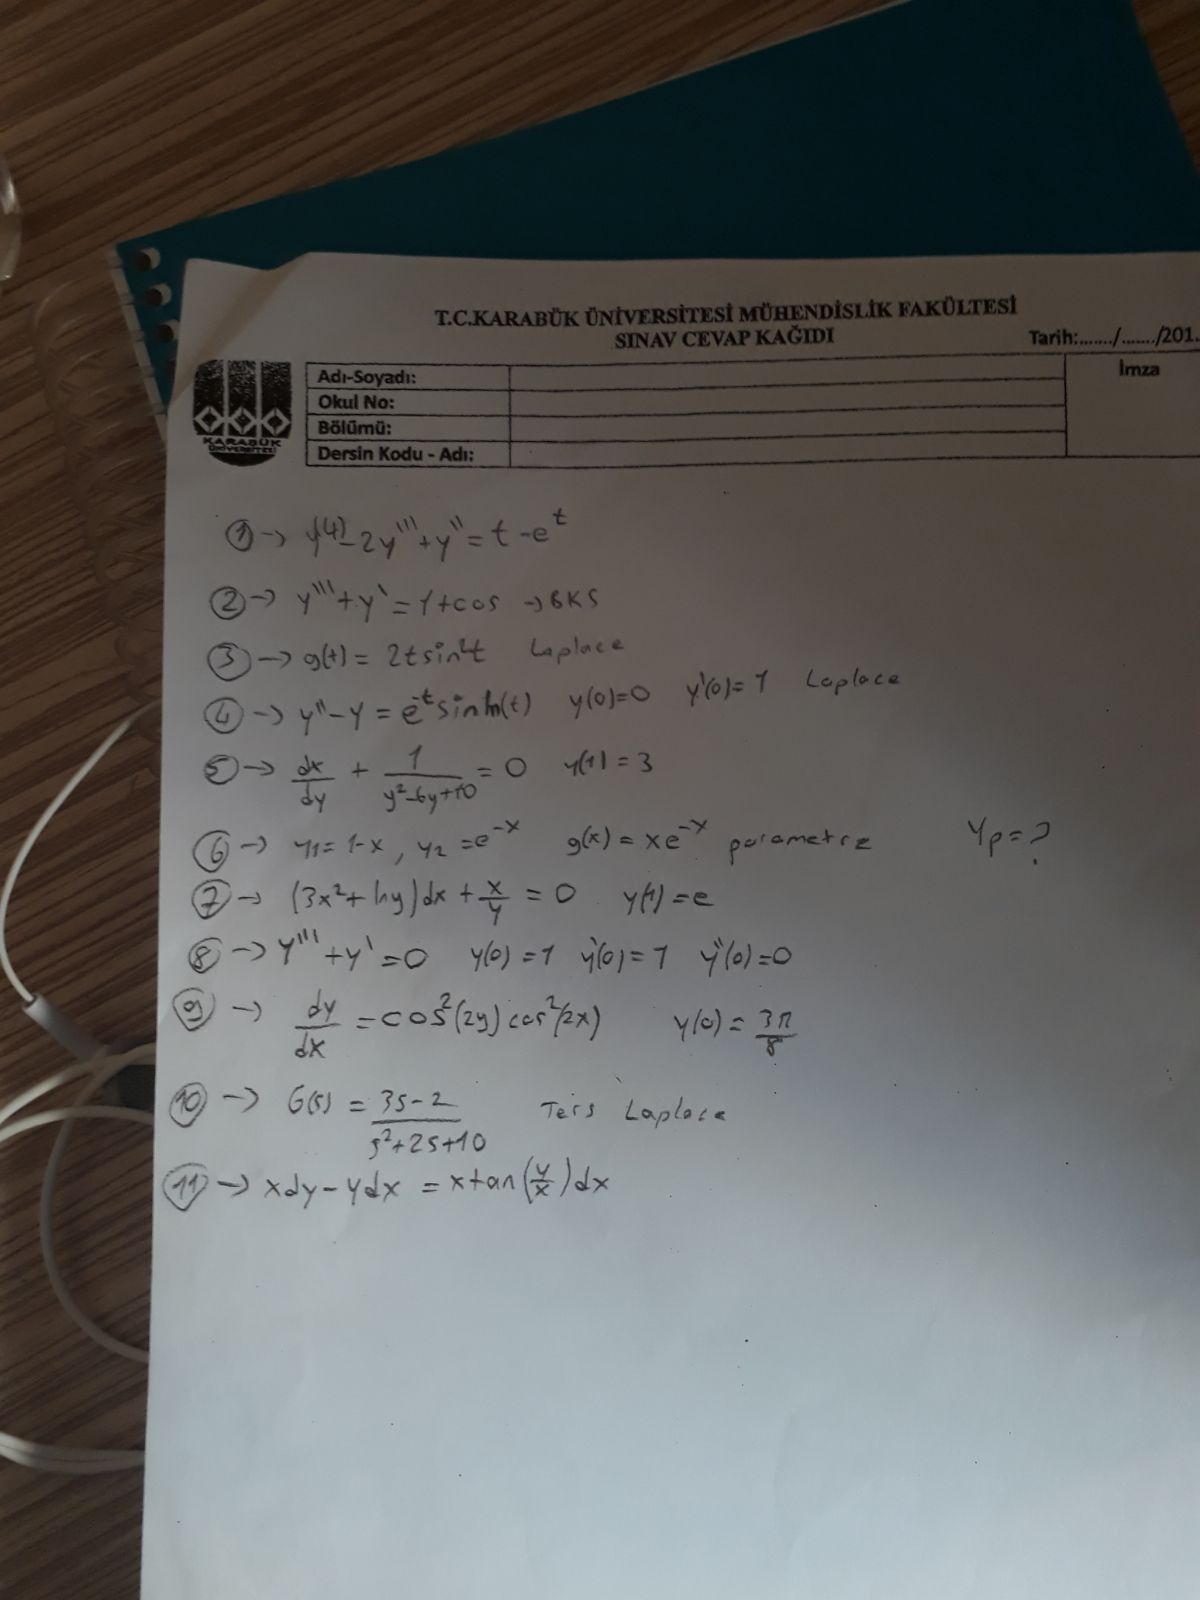 T.C.KARABÜK ÜNİVERSİTESİ MÜHENDİSLİK FAKÜLTESİ
SINAV CEVAP KAĞIDI
Tarih:......./......./201..
KARABÜK
ÜNİVERSİTESİ
Adı-Soyadı:
Okul No:
Bölümü:
Dersin Kodu - Adı:
İmza
① → y⁽⁴⁾ - 2y''' + y'' = t - e^t
② → y''' + y' = 1 + cos → BKS
③ → g(t) = 2t sin²t Laplace
④ → y'' - y = e^-t sinh(t) y(0)=0 y'(0)=1 Laplace
⑤ → dx/dy + 1/(y²-6y+10) = 0 y(1) = 3
⑥ → y1 = 1-x, y2 = e^-x g(x) = xe^-x parametre Yp = ?
⑦ → (3x² + lny)dx + x/y = 0 y(1) = e
⑧ → y''' + y' = 0 y(0) = 1 y'(0) = 1 y''(0) = 0
⑨ → dy/dx = cos²(2y) cos²(2x) y(0) = 3π/8
⑩ → G(s) = (3s-2)/(s²+2s+10) Ters Laplace
⑪ → xdy - ydx = x tan(y/x)dx